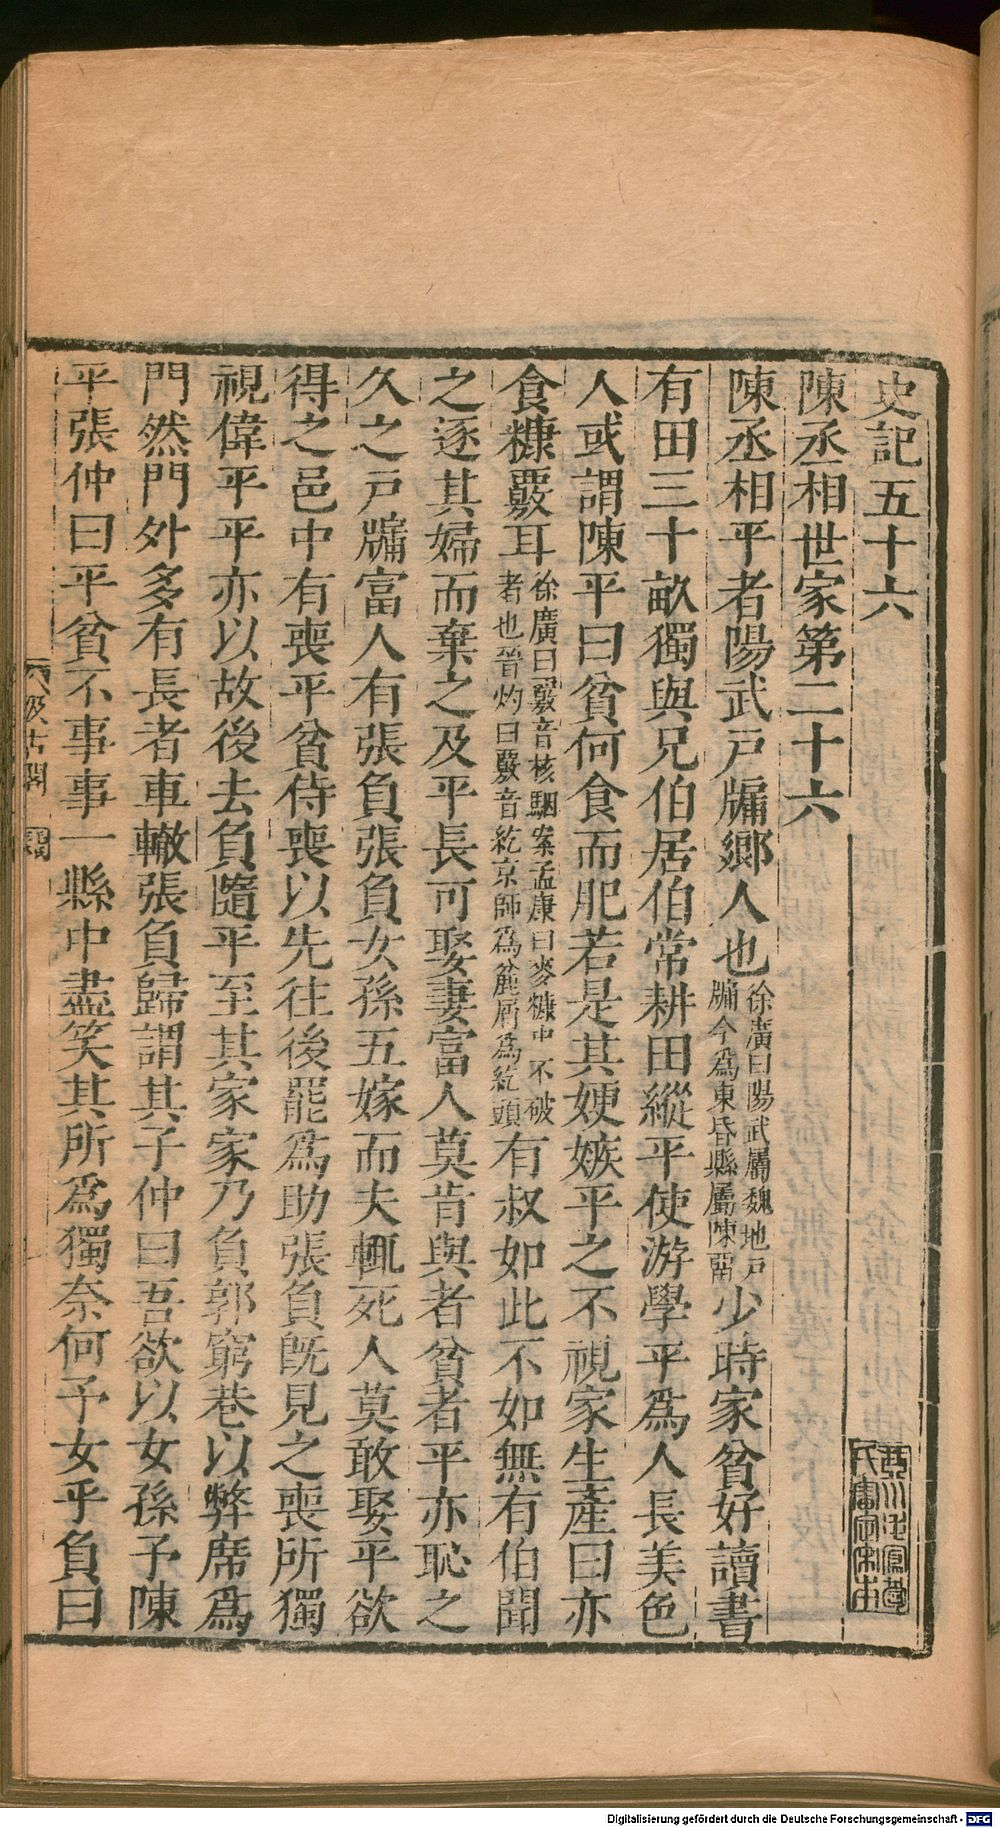 史記五十六
陳丞相世家第二十六
陳丞相平者陽武戸牖鄉人也
徐廣曰陽武屬魏地戸
牖今為東昏縣屬陳畱
少時家貧好讀書
有田三十畝獨與兄伯居伯常耕田縱平使游學平爲人長美色
人或謂陳平曰貧何食而肥若是其嫂嫉平之不視家生產曰亦
食糠覈耳
徐廣曰覈音核駰案孟康曰麥糠中不破
者也晉灼曰覈音紇京師爲麄屑爲紇頭
有叔如此不如無有伯聞
之逐其婦而棄之及平長可娶妻富人莫肯與者貧者平亦恥之
久之戸牖富人有張負張負女孫五嫁而夫輒死人莫敢娶平欲
得之邑中有喪平貧侍喪以先往後罷爲助張負旣見之喪所獨
視偉平平亦以故後去負隨平至其家家乃負郭窮巷以弊席爲
門然門外多有長者車轍張負歸謂其子仲曰吾欲以女孫予陳
平張仲曰平貧不事事一縣中盡笑其所爲獨奈何予女乎負曰
汲古閣
Digitalisierung gefördert durch die Deutsche Forschungsgemeinschaft - DFG